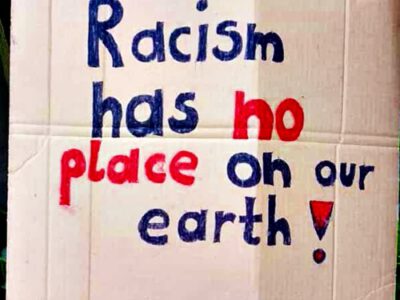 Racism
has no
place on our
earth!